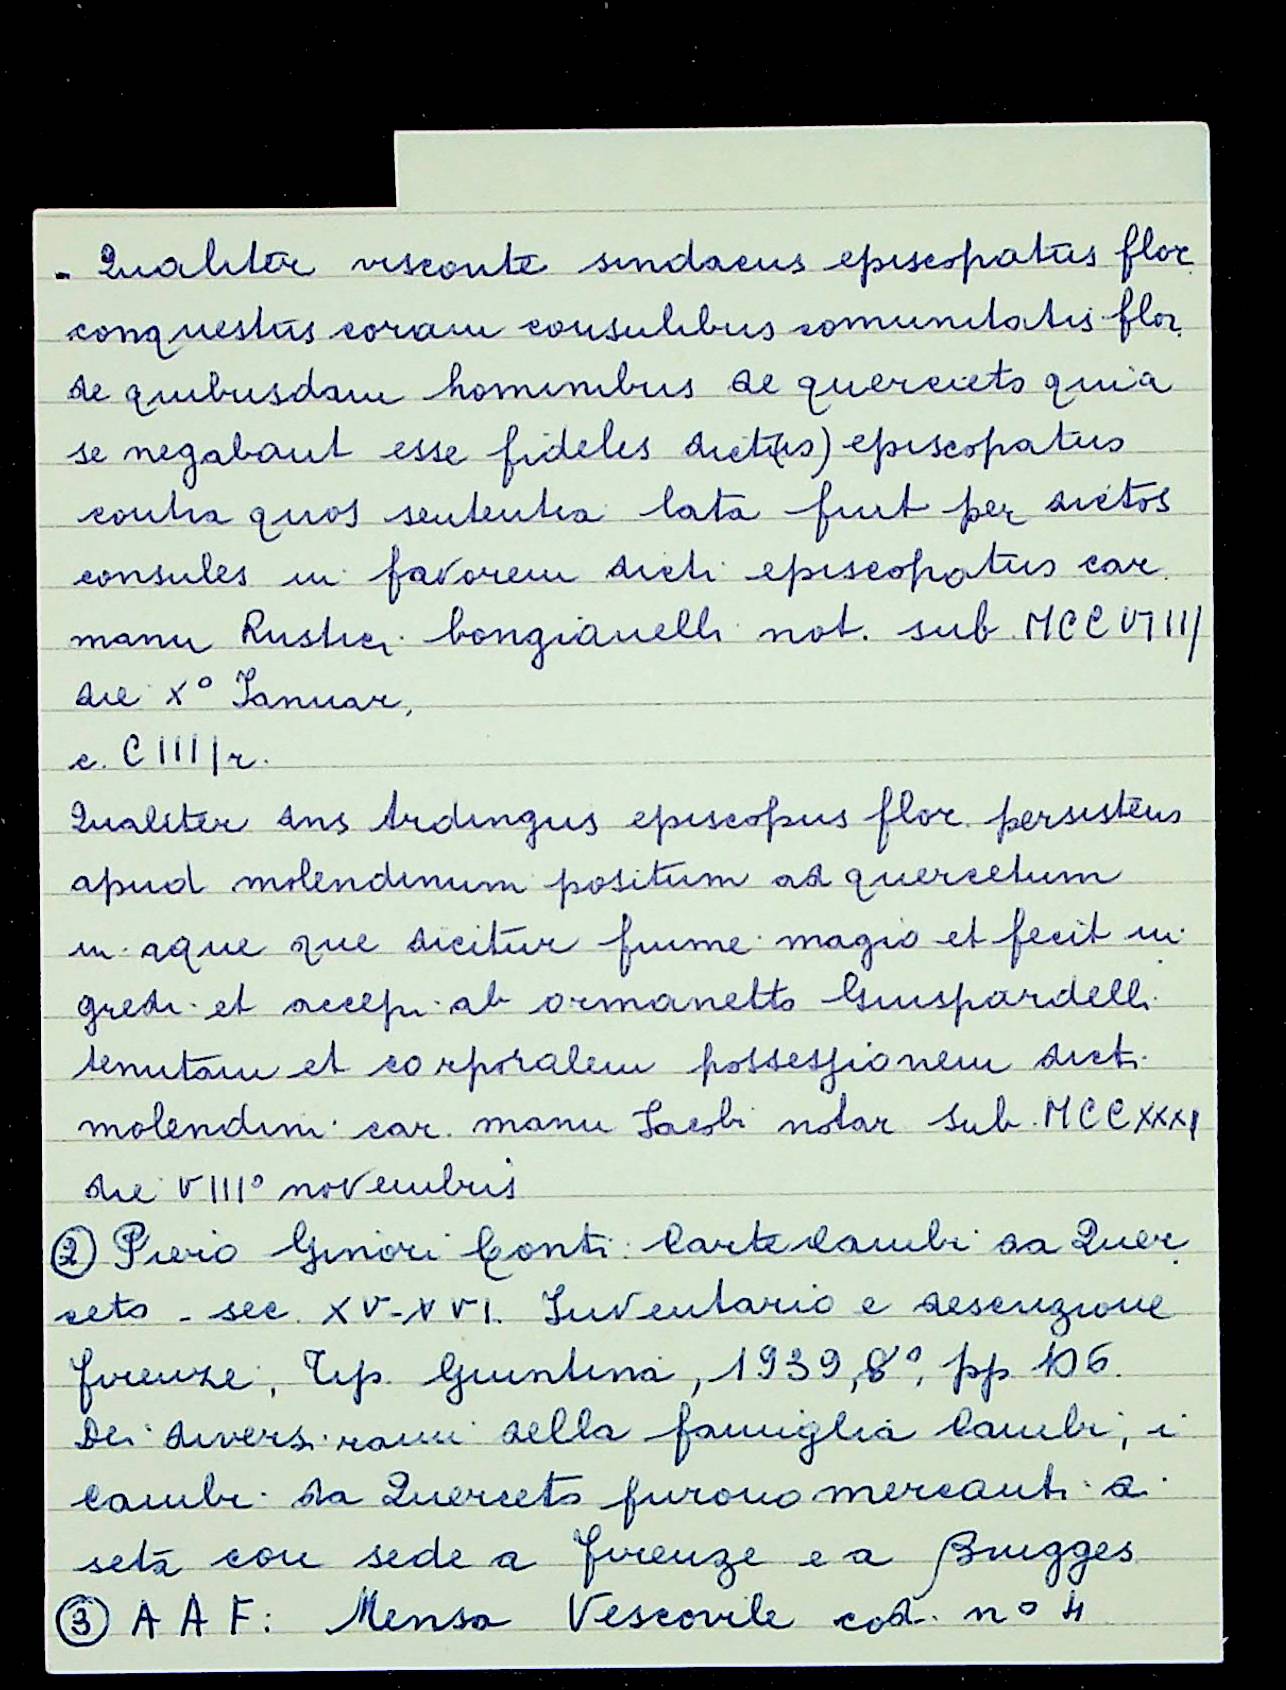 - Qualiter visconte sindacus episcopatus flor.
conquestus coram consulibus comunitatis flor.
de quibusdam hominibus de quercieto quia
se negabant esse fideles dict(us) episcopatus
contra quos sententia lata fuit per dictos
consules in favorem dicti episcopatus car.
manu Rustici bongianelli not. sub MCCVIIII
die X° Januar,
c. CIIII r.
Qualiter dns Ardingus episcopus flor. persistens
apud molendinum positum ad quercetum
in aque que dicitur fiume magio et fecit in
gredi et accepi ab ormanetto Guispardelli
tenutam et corporalem possessionem dicti
molendini car. manu Jacobi notar sub MCCXXXI
die VIII° novembris
② Piero Ginori Conti: Carte Cambi da Quer
ceto - sec. XV-XVI. Inventario e descrizione
Firenze, Tip. Giuntina, 1939, 8°, pp 106.
Dei diversi rami della famiglia Cambi, i
Cambi da Querceto furono mercanti di
seta con sede a Firenze e a Brugges
③ A A F: Mensa Vescovile cod. n° 4